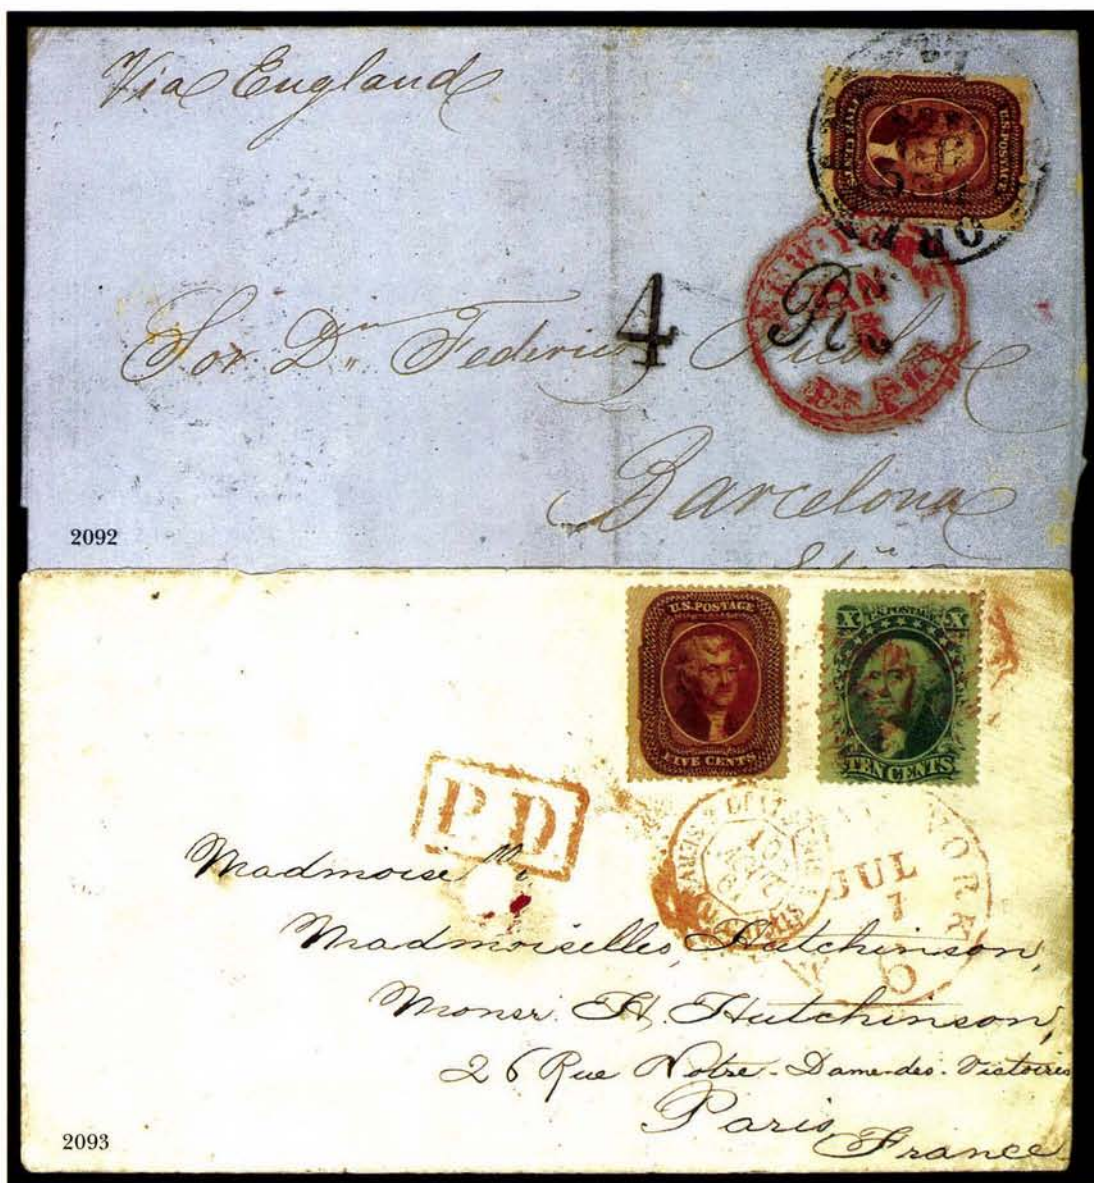 Via England
U.S. POSTAGE
FIVE CENTS
4
Rs
Sor. Dn Federico
Barcelona
2092
U.S. POSTAGE
FIVE CENTS
X U.S. POSTAGE X
TEN CENTS
P. D.
YORK
JUL
1
Madmoiselles, Hutchinson,
Monsr. H. Hutchinson,
26 Rue Notre-Dame-des-Victoires
Paris
France
2093